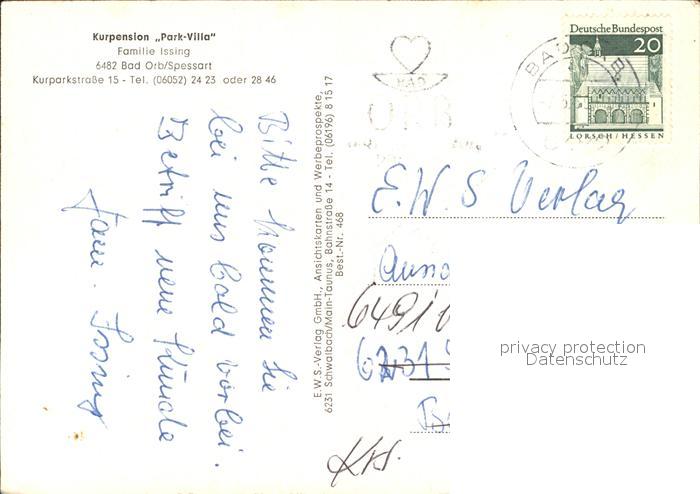 Kurpension „Park-Villa"
Familie Issing
6482 Bad Orb/Spessart
Kurparkstraße 15 - Tel. (06052) 24 23 oder 28 46
Bitte kommen Sie
bei uns bald vorbei.
Betriff neue Künde
Fam. Issing
E.W.S.-Verlag GmbH., Ansichtskarten und Werbeprospekte,
6231 Schwalbach/Main-Taunus, Bahnstraße 14 - Tel. (06196) 8 15 17
Best.-Nr. 468
BAD
ORB
BAD ORB
Deutsche Bundespost
20
LORSCH/HESSEN
E.W.S Verlag
6491
6231
privacy protection
Datenschutz